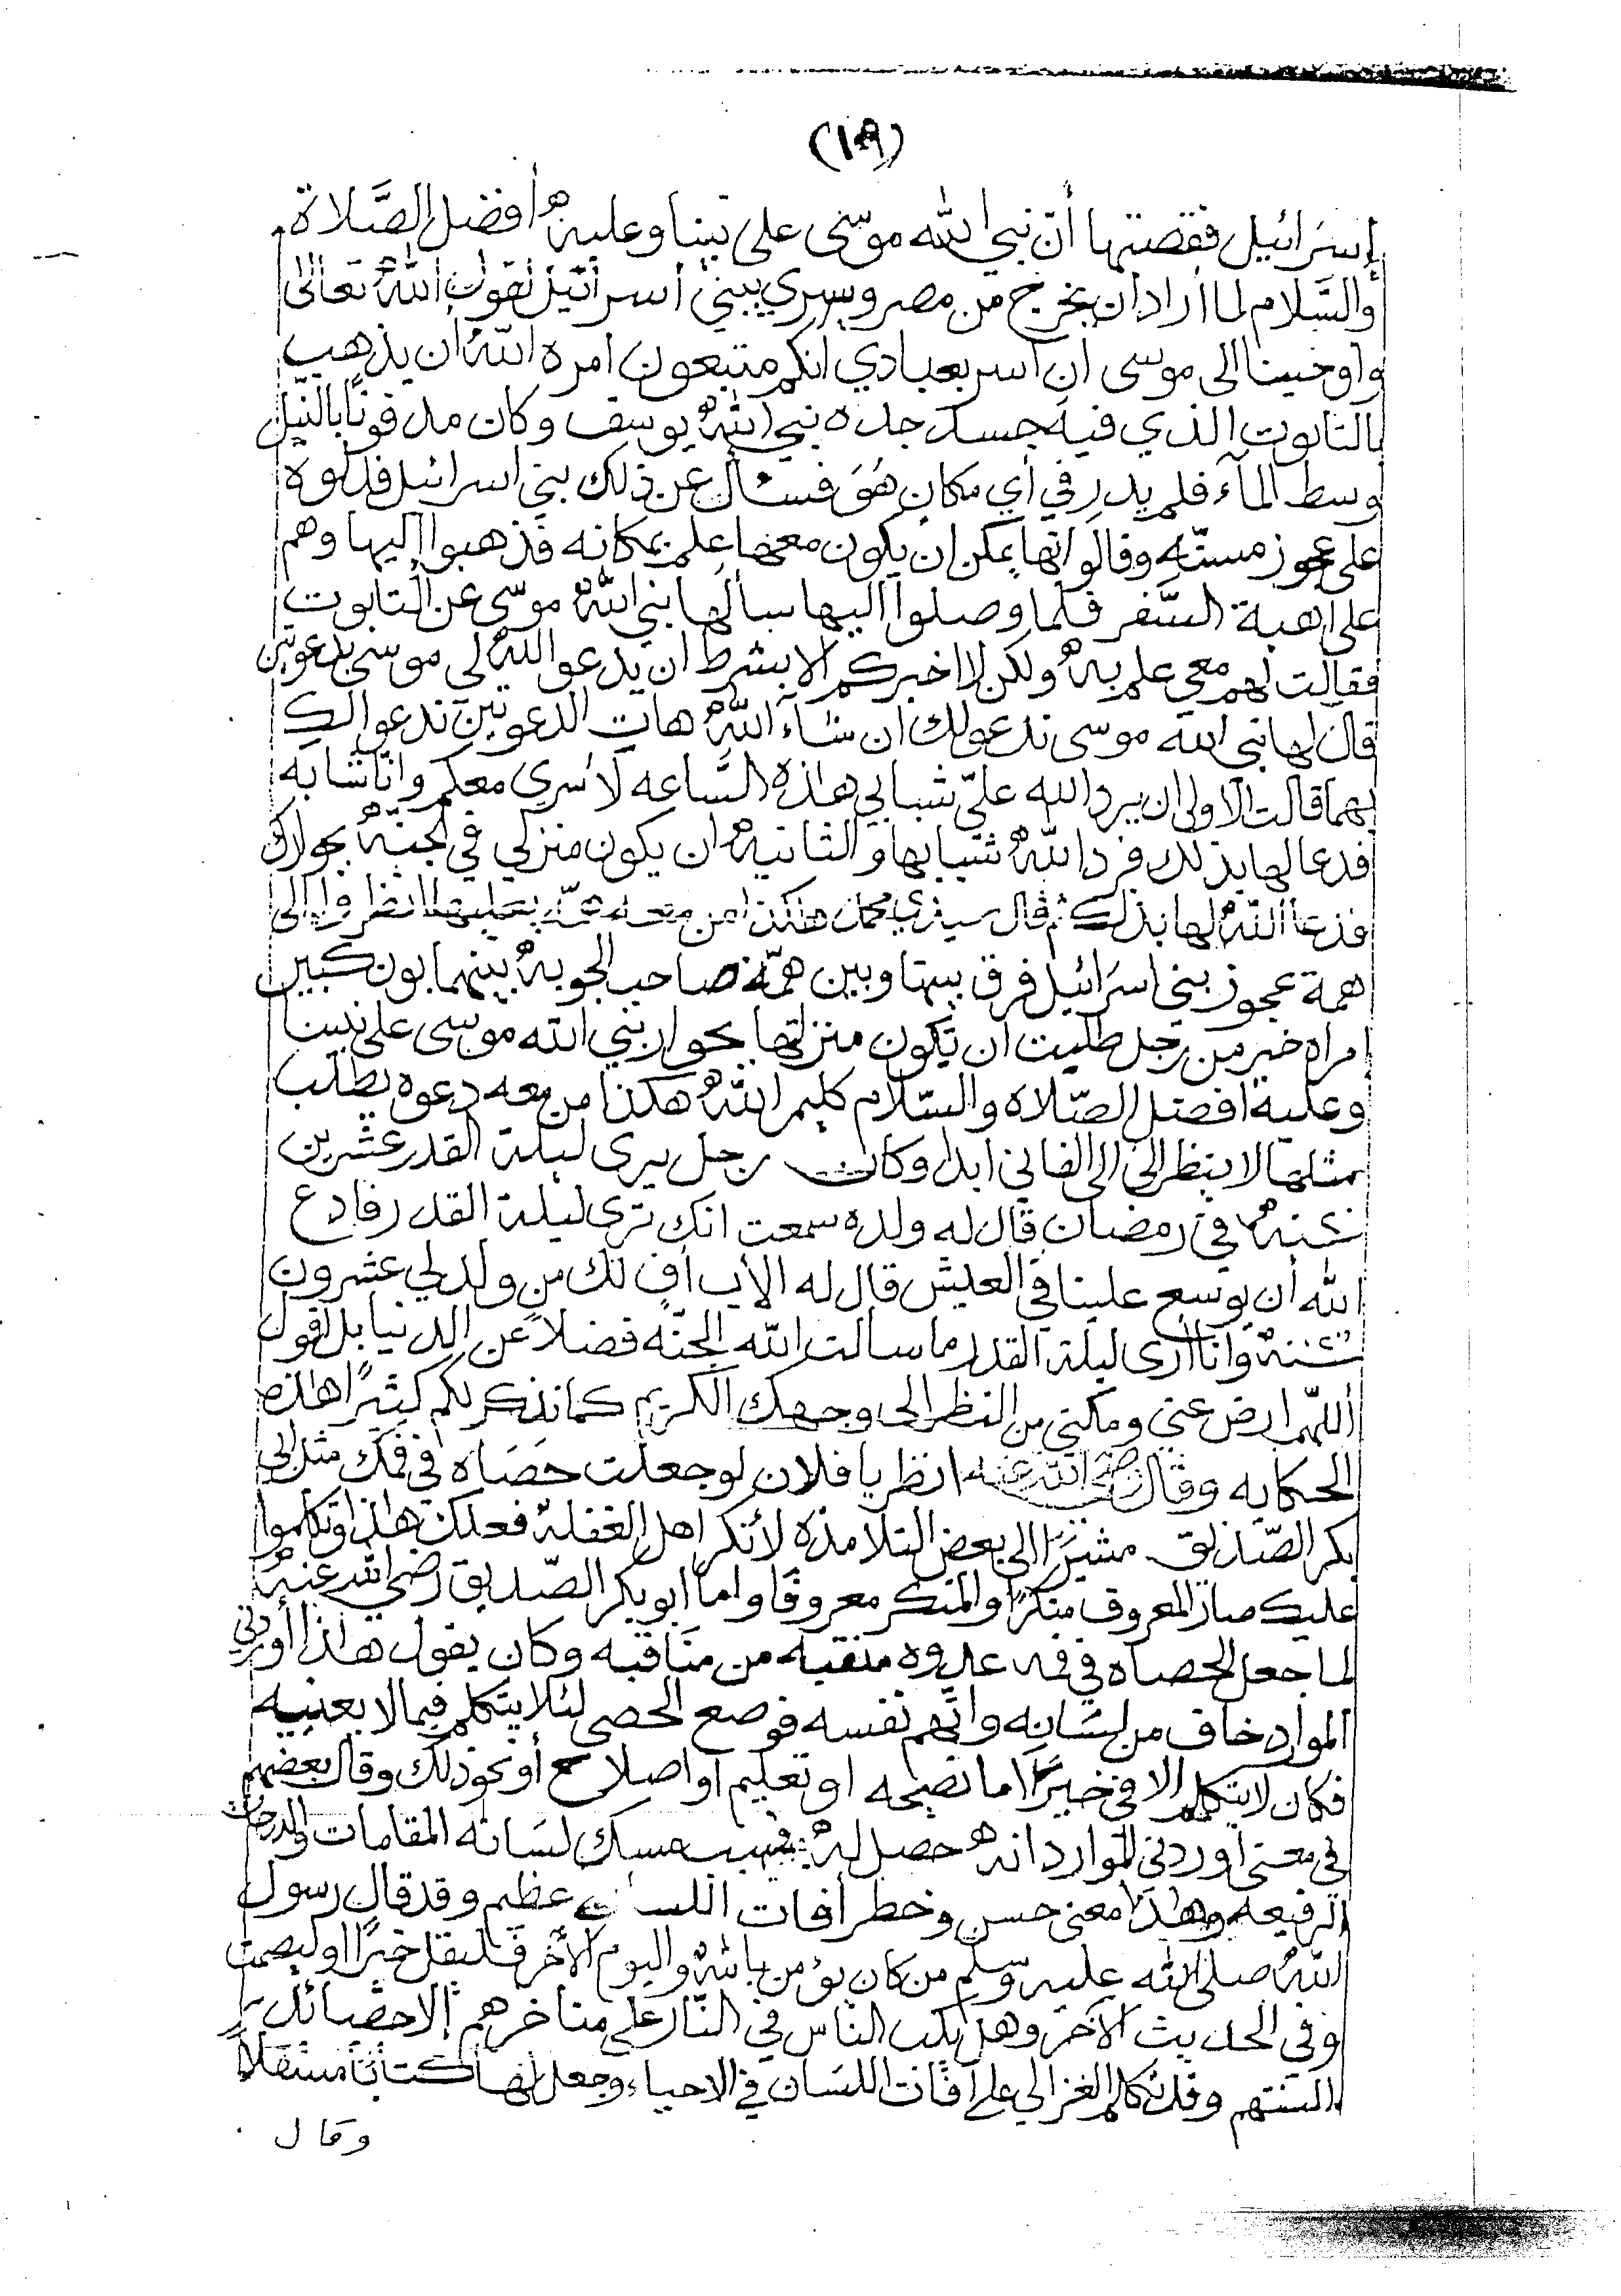 (١٩)
إسرائيل فقصتها أن نبي الله موسى على نبينا وعليه أفضل الصلاة
والسلام لما أراد ان يخرج من مصر ويسري ببني أسرائيل لقول الله تعالى
وأوحينا الى موسى ان أسر بعبادي انكم متبعون امره الله ان يذهب
بالتابوت الذي فيه جسد جده نبي الله يوسف وكان مدفونًا بالنيل
وسط المآء فلم يدر في أي مكان هو فسأل عن ذلك بني اسرائيل فدلوه
على عجوز مسنه وقالوا انها يمكن ان يكون معها علم بمكانه فذهبوا إليها وهم
على اهبة السفر فلما وصلوا اليها سألها نبي الله موسى عن التابوت
فقالت لهم معي علم به ولكن لا اخبركم الا بشرط ان يدعو الله لي موسى بدعوتين
قال لها نبي الله موسى ندعو لك ان شاء الله هات الدعوتين ندعوا لك
بهما قالت الاولى ان يرد الله علي شبابي هذه الساعه لأسري معكم وانا شابه
فدعا لها بذلك فرد الله شبابها والثانيه ان يكون منزلي في الجنه بجوارك
فدعا الله لها بذلك ثم قال سيدي هكذا من انظروا إلى
همة عجوز بني اسرائيل فرق بينها وبين همة صاحب الجوبه بينهما بون كبير
امراه خير من رجل طلبت ان تكون منزلتها بجوار نبي الله موسى على نبينا
وعليه افضل الصلاه والسلام كليم الله هكذا من معه دعوه يطلب
مثلها لا ينظر الى الفاني ابدا وكان رجل يرى ليلة القدر عشرين
سنه في رمضان قال له ولده سمعت انك ترى ليلة القدر فادع
الله أن يوسع علينا في العيش قال له الأب أف لك من ولد لي عشرون
سنه وانا أرى ليلة القدر ما سالت الله الجنه فضلاً عن الدنيا بل اقول
اللهم ارض عني ومكني من النظر الى وجهك الكريم كما نذكر لكم كثيرًا هذه
الحكايه وقال رضي الله عنه انظر يا فلان لو جعلت حصاه في فمك مثل ابي
بكر الصديق مشيرًا الى بعض التلامذه لأنكر اهل الغفله فعلك هذا وتكلموا
عليك صار المعروف منكرًا والمنكر معروفًا واما ابو بكر الصديق رضي الله عنه
لما جعل الحصاه في فمه عدوه منقبه من مناقبه وكان يقول هذا أوردني
الموارد خاف من لسانه واتهم نفسه فوضع الحصى لئلا يتكلم فيما لا يعنيه
فكان لا يتكلم الا في خير اما نصيحه او تعليم او اصلاح أو نحو ذلك وقال بعضهم
في معنى أوردني الموارد انه حصل له بسبب مسك لسانه المقامات والدرجات
الرفيعه وهذا معنى حسن وخطر أفات اللسان عظيم وقد قال رسول
الله صلى الله عليه وسلم من كان يؤمن بالله واليوم الآخر فليقل خيرًا او ليصمت
وفي الحديث الآخر وهل يكب الناس في النار على مناخرهم إلا حصائد
السنتهم وقد تكلم الغزالي على آفات اللسان في الاحياء وجعل لها كتابًا مستقلاً
وقال